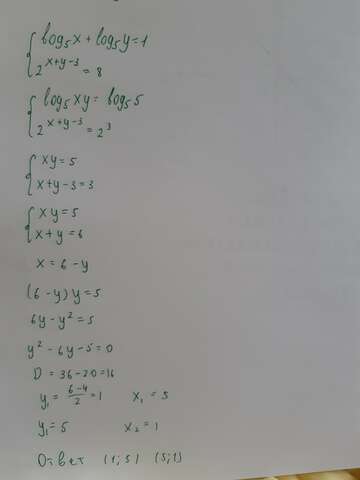 log₅x + log₅y = 1
2^(x+y-3) = 8
log₅xy = log₅5
2^(x+y-3) = 2³
xy = 5
x+y-3=3
xy = 5
x+y = 6
x = 6 - y
(6 - y) y = 5
6y - y² = 5
y² - 6y - 5 = 0
D = 36 - 20 = 16
y₁ = (6-4)/2 = 1 x₁ = 5
y₁ = 5 x₂ = 1
Ответ (1; 5) (5; 1)